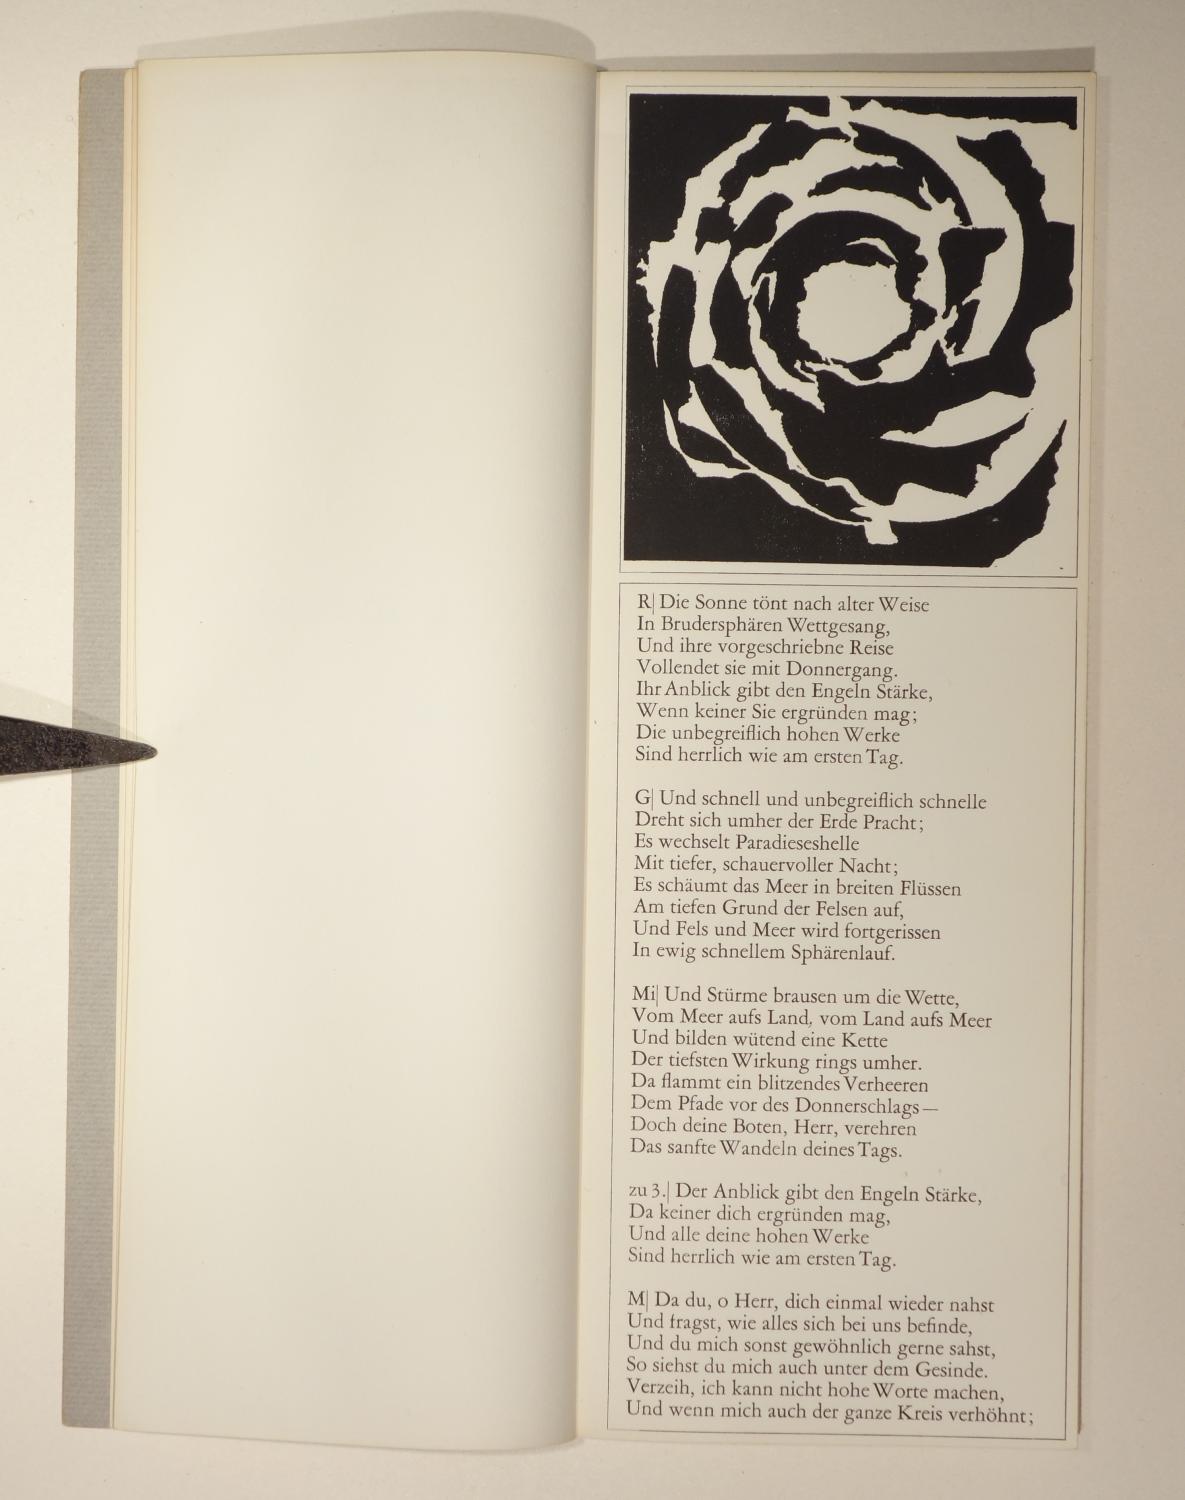 R| Die Sonne tönt nach alter Weise
In Brudersphären Wettgesang,
Und ihre vorgeschriebne Reise
Vollendet sie mit Donnergang.
Ihr Anblick gibt den Engeln Stärke,
Wenn keiner Sie ergründen mag;
Die unbegreiflich hohen Werke
Sind herrlich wie am ersten Tag.
G| Und schnell und unbegreiflich schnelle
Dreht sich umher der Erde Pracht;
Es wechselt Paradieseshelle
Mit tiefer, schauervoller Nacht;
Es schäumt das Meer in breiten Flüssen
Am tiefen Grund der Felsen auf,
Und Fels und Meer wird fortgerissen
In ewig schnellem Sphärenlauf.
Mi| Und Stürme brausen um die Wette,
Vom Meer aufs Land, vom Land aufs Meer
Und bilden wütend eine Kette
Der tiefsten Wirkung rings umher.
Da flammt ein blitzendes Verheeren
Dem Pfade vor des Donnerschlags—
Doch deine Boten, Herr, verehren
Das sanfte Wandeln deines Tags.
zu 3.| Der Anblick gibt den Engeln Stärke,
Da keiner dich ergründen mag,
Und alle deine hohen Werke
Sind herrlich wie am ersten Tag.
M| Da du, o Herr, dich einmal wieder nahst
Und fragst, wie alles sich bei uns befinde,
Und du mich sonst gewöhnlich gerne sahst,
So siehst du mich auch unter dem Gesinde.
Verzeih, ich kann nicht hohe Worte machen,
Und wenn mich auch der ganze Kreis verhöhnt;